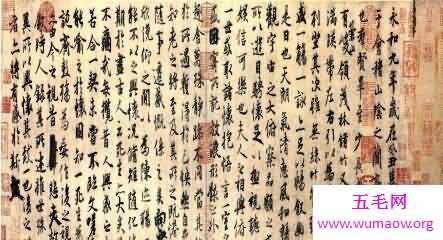 永和九年歲在癸丑
于會稽山陰之蘭亭
也群賢畢至少
有崇山峻領茂林脩竹
湍暎帶左右引以為
列坐其次雖無絲竹
盛一觴一詠亦足以暢敘幽
是日也天朗氣清惠風和暢
觀宇宙之大俯察品類之
所以遊目騁懷足以極視聽
娛信可樂也夫人之相與
一世或取諸懷抱悟言一室
因寄所託放浪形骸之外
趣舍萬殊靜躁不同當其
於所遇蹔得於己怏然自足
知老之將至及其所之既惓
隨事遷感慨係之矣向之
欣俛仰之閒以為陳迹猶
能不以之興懷況脩短隨化
期於盡古人云死生亦大矣
不痛哉每攬昔人興感之
若合一契未嘗不臨文嗟
能喻之於懷固知一死生為
誕齊彭殤為妄作後之視
今之視昔悲夫故列
敘時人錄其所述雖世殊
異所以興懷其致一也
者亦將有感於斯
五毛网
www.wumaow.org